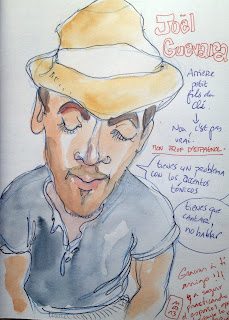 Joël
Guevara
Arrière
petit
fils du
Ché
Non, c'est pas
vrai.
MON PROF D'ESPAGNOL.
tienes un problema
con los acentos
tónicos
tienes que
cantar!
no hablar
a ti
amigo
y a seguir
practicando